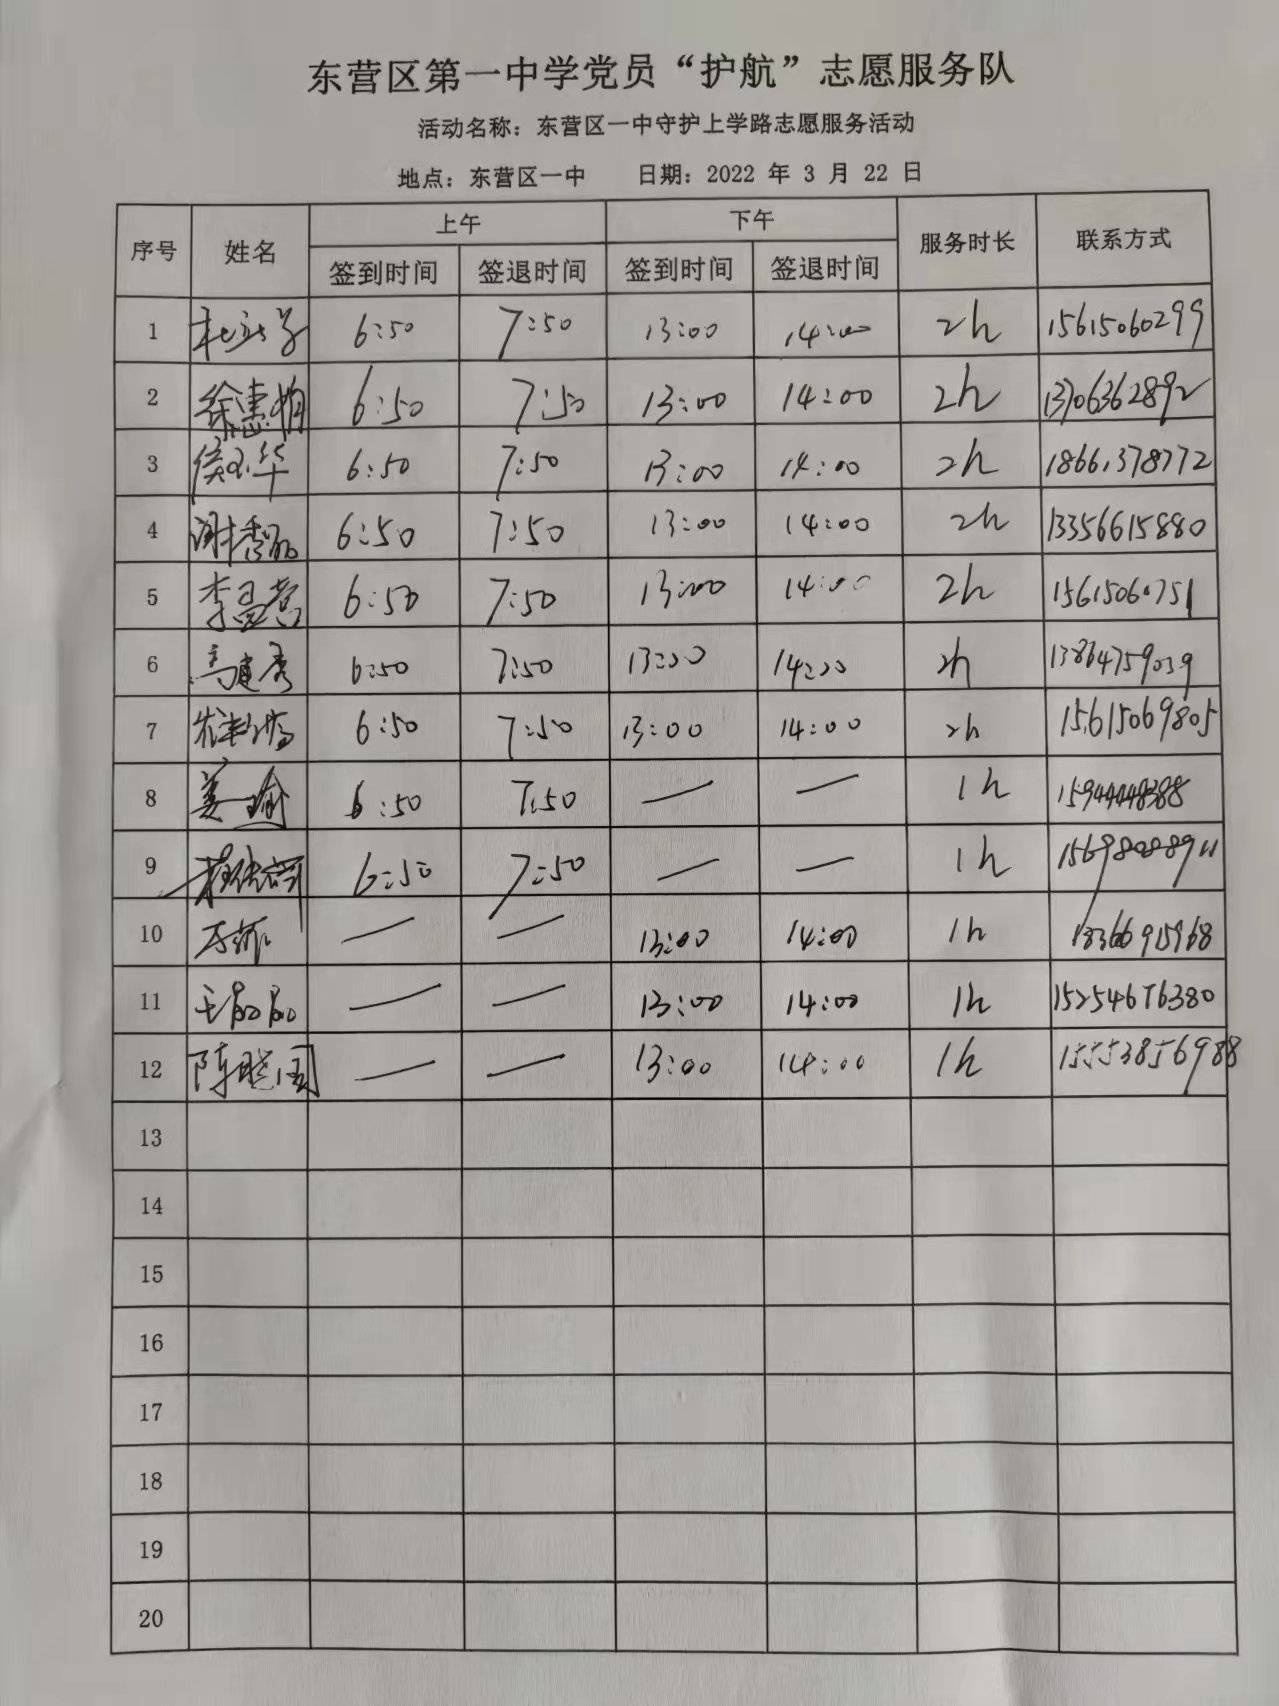 东营区第一中学党员“护航”志愿服务队
活动名称：东营区一中守护上学路志愿服务活动
地点：东营区一中 日期：2022 年 3 月 22 日
序号 姓名 上午 下午 服务时长 联系方式
签到时间 签退时间 签到时间 签退时间
1 6:50 7:50 13:00 14:00 2h 15615060299
2 徐惠梅 6:50 7:50 13:00 14:00 2h 13706362892
3 侯玉华 6:50 7:50 13:00 14:00 2h 18661378772
4 谢秀丽 6:50 7:50 13:00 14:00 2h 13356615880
5 李昌营 6:50 7:50 13:00 14:00 2h 15615060751
6 高建秀 6:50 7:50 13:00 14:00 2h 13864759039
7 6:50 7:50 13:00 14:00 2h 15615069805
8 姜瑜 6:50 7:50 — — 1h
9 6:50 7:50 — — 1h
10 — — 13:00 14:00 1h
11 王晶晶 — — 13:00 14:00 1h 15254676380
12 陈晓国 — — 13:00 14:00 1h 15553856988
13
14
15
16
17
18
19
20